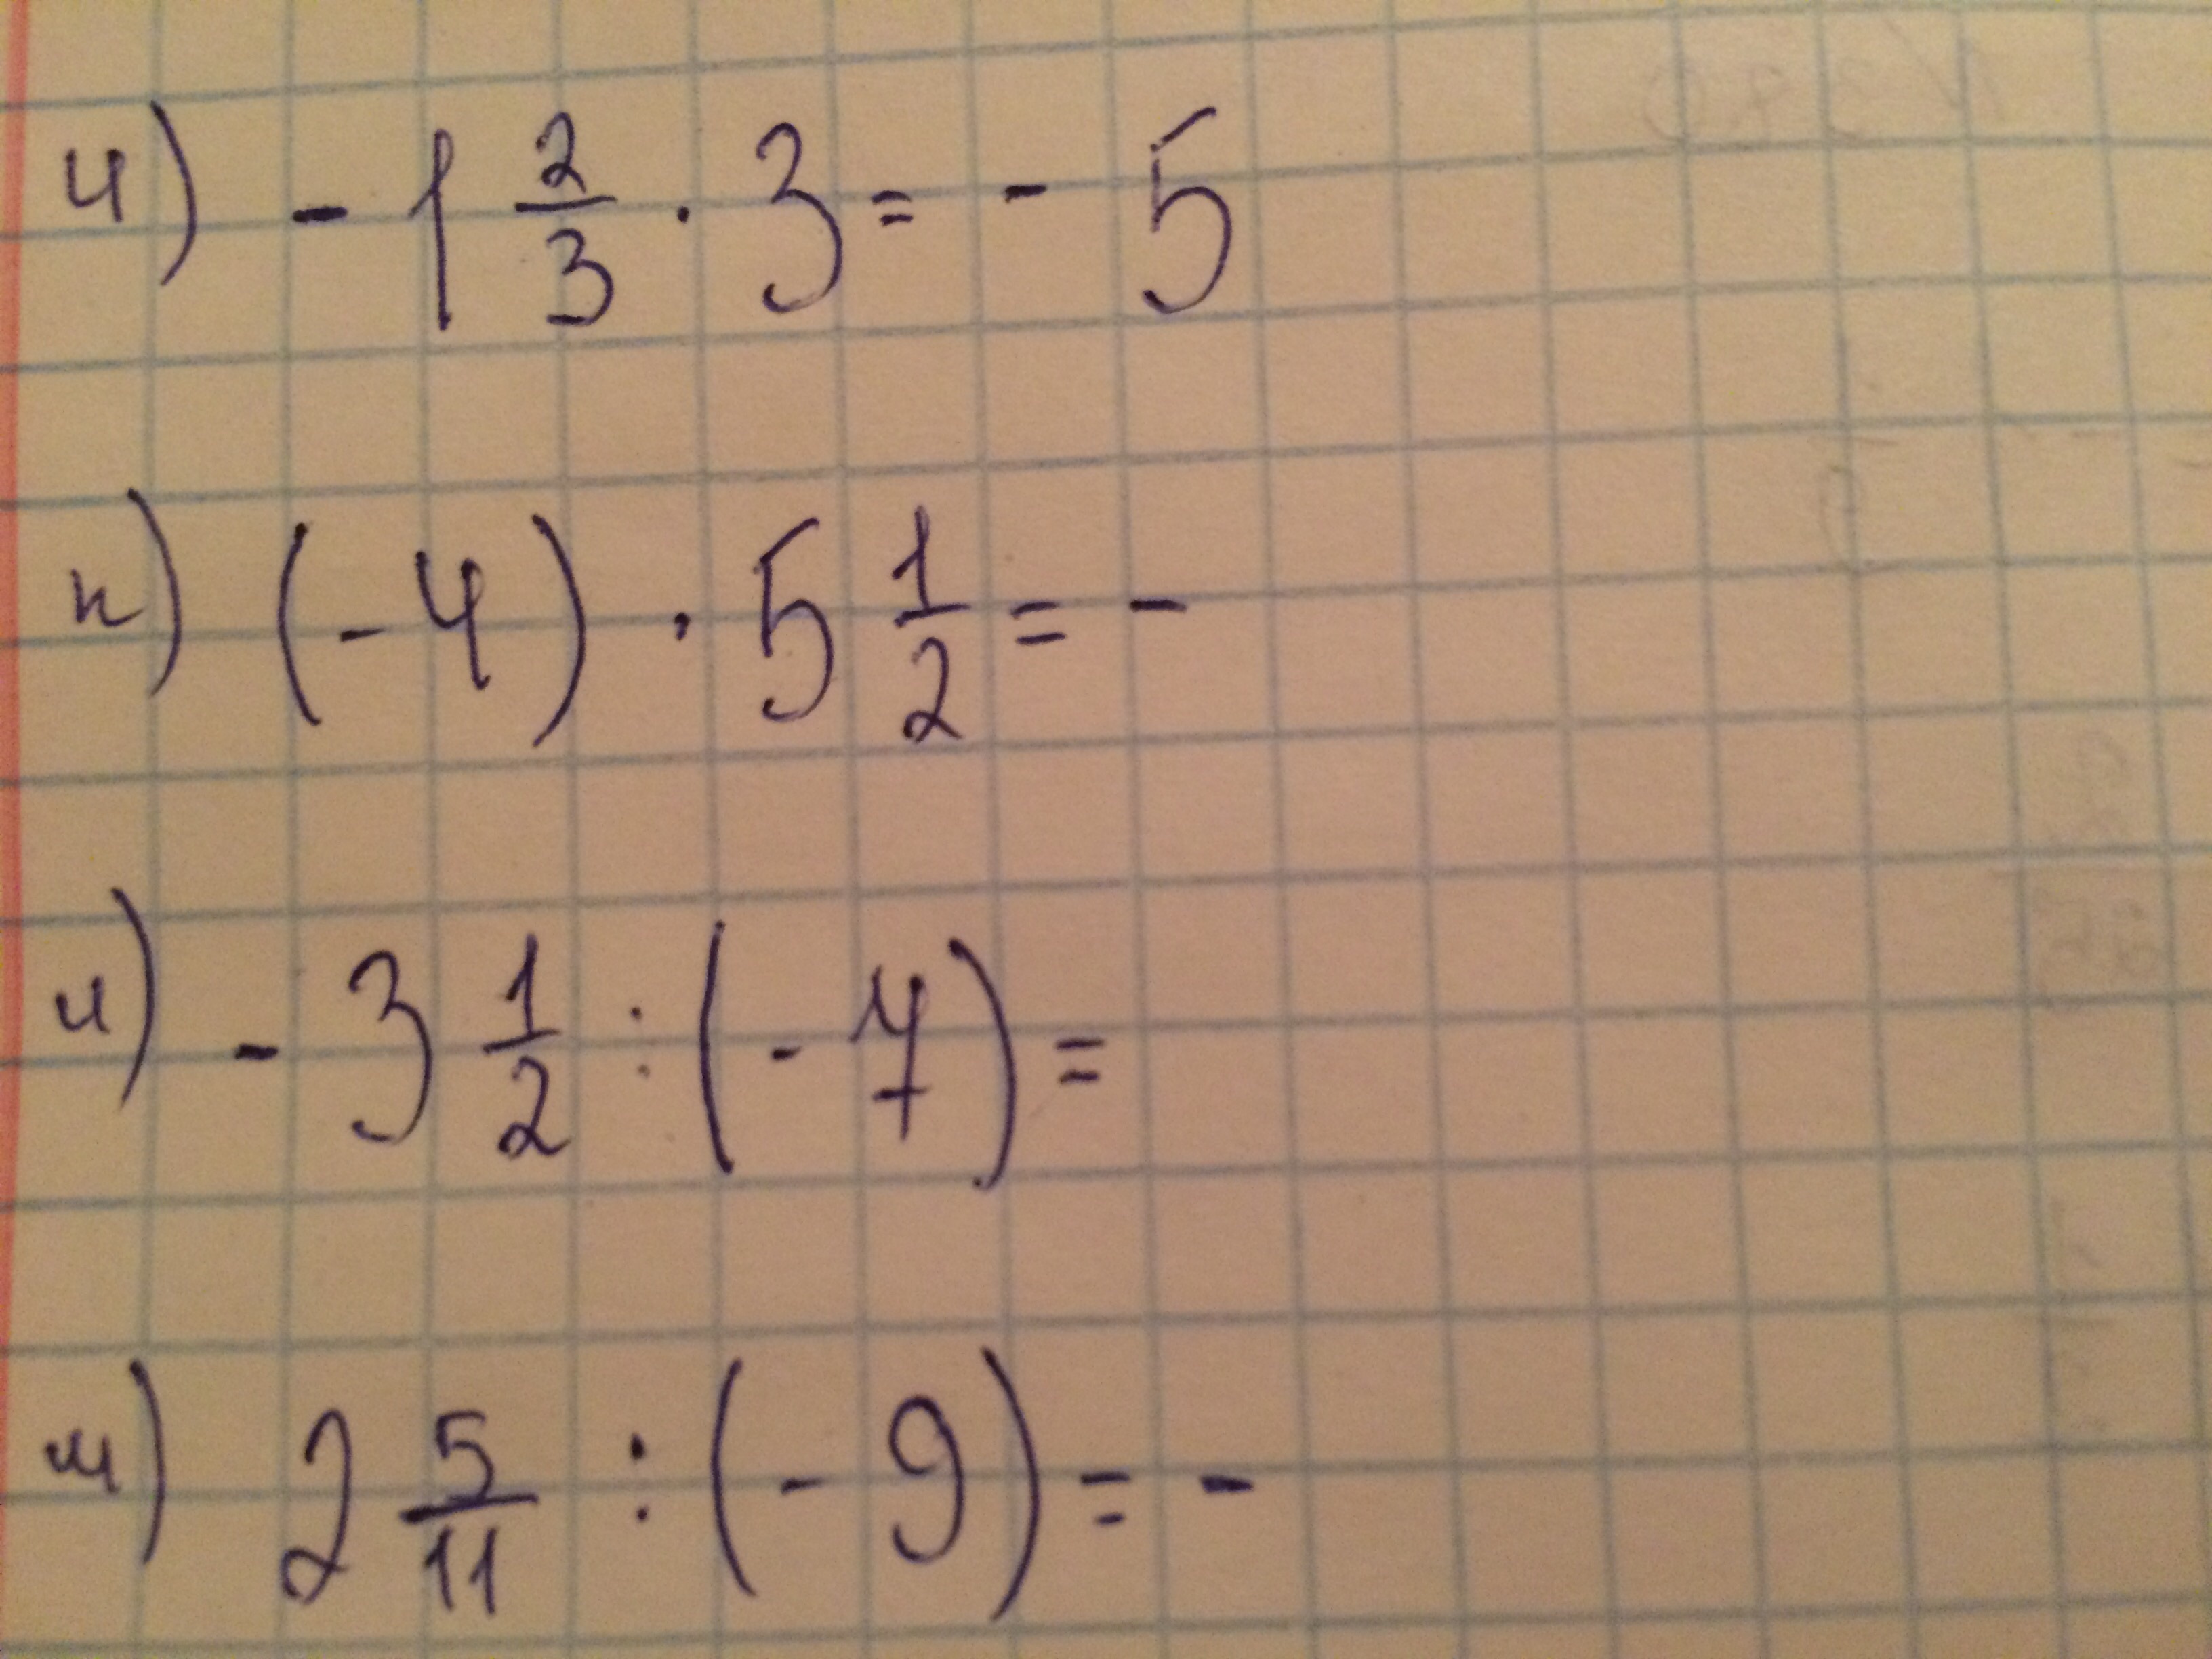 и) - 1 2/3 · 3 = - 5
к) (-4) · 5 1/2 = -
л) - 3 1/2 : (-7) =
м) 2 5/11 : (-9) = -